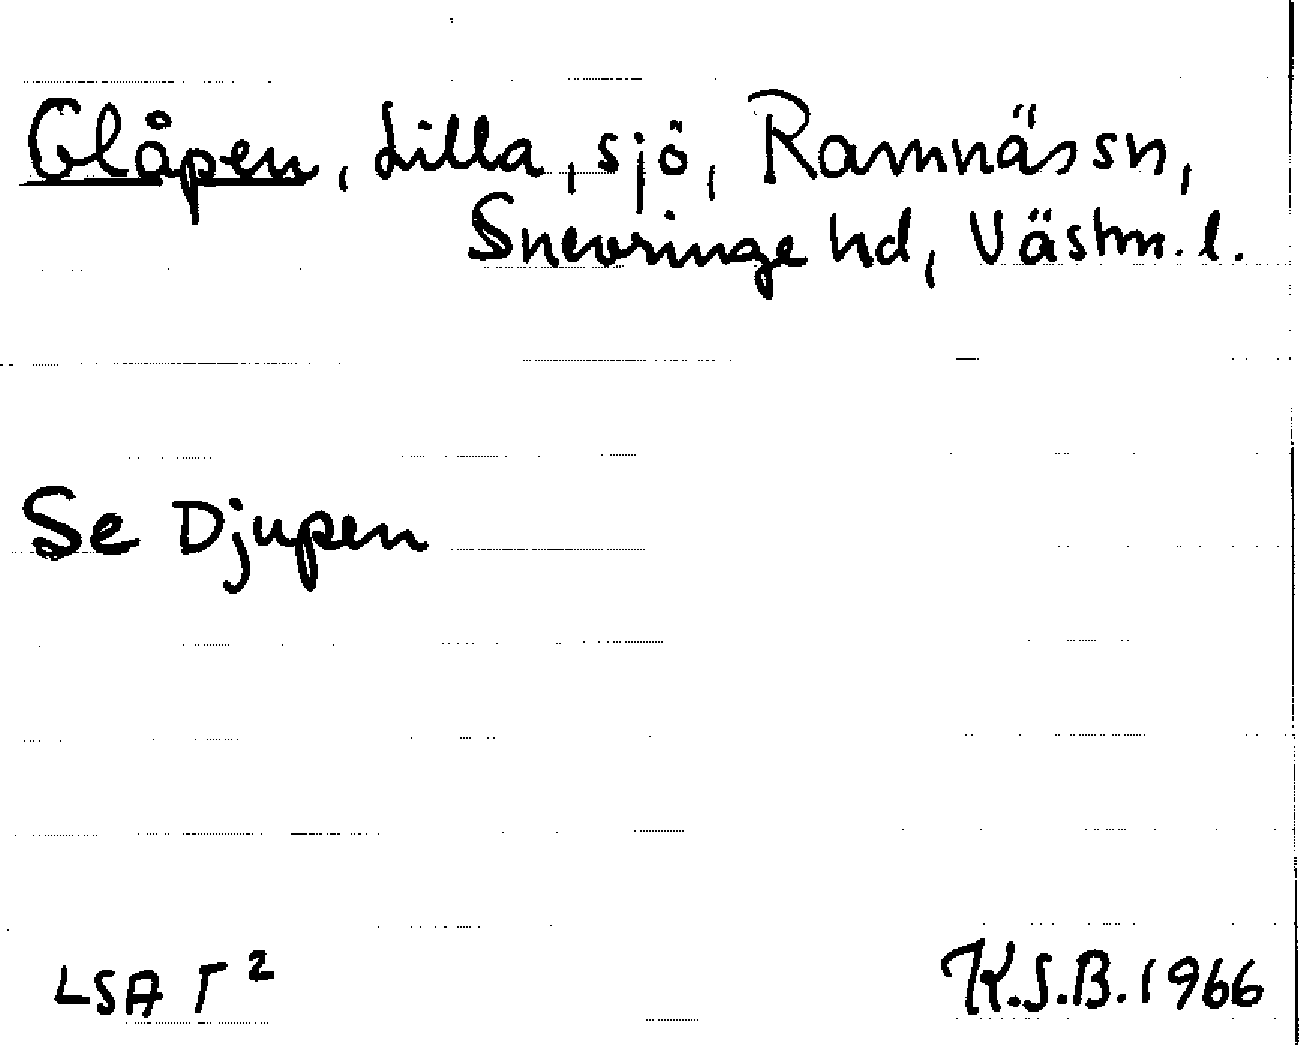 Glåpen, Lilla, sjö, Ramnäs sn,
Snevringe hd, Västm. l.
Se Djupen
LSA Γ²
K.S.B. 1966